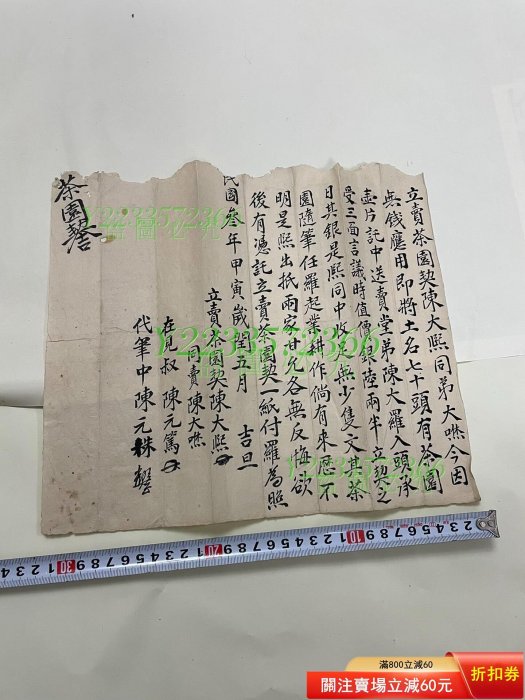 立賣茶園契陳大熙同弟大㷋今因
無錢應用即將土名七十頭有茶園
壶片託中送賣堂弟陳大羅入頭承
受三面言議時值價 陸兩半 契之
日其銀是熙同中收足無少隻文其茶
園隨筆任羅起業耕作倘有來歷不
明是熙出抵兩家甘允各無反悔欲
後有憑託立賣茶園契一紙付羅為照
民國叁年甲寅歲閏五月 吉旦
立賣茶園契陳大熙
同賣陳大㷋
在見叔 陳元篤
代筆中陳元株
茶園契
Y2233572366
Y2233572366
Y2233572366
滿800立減60
關注賣場立減60元
折扣券